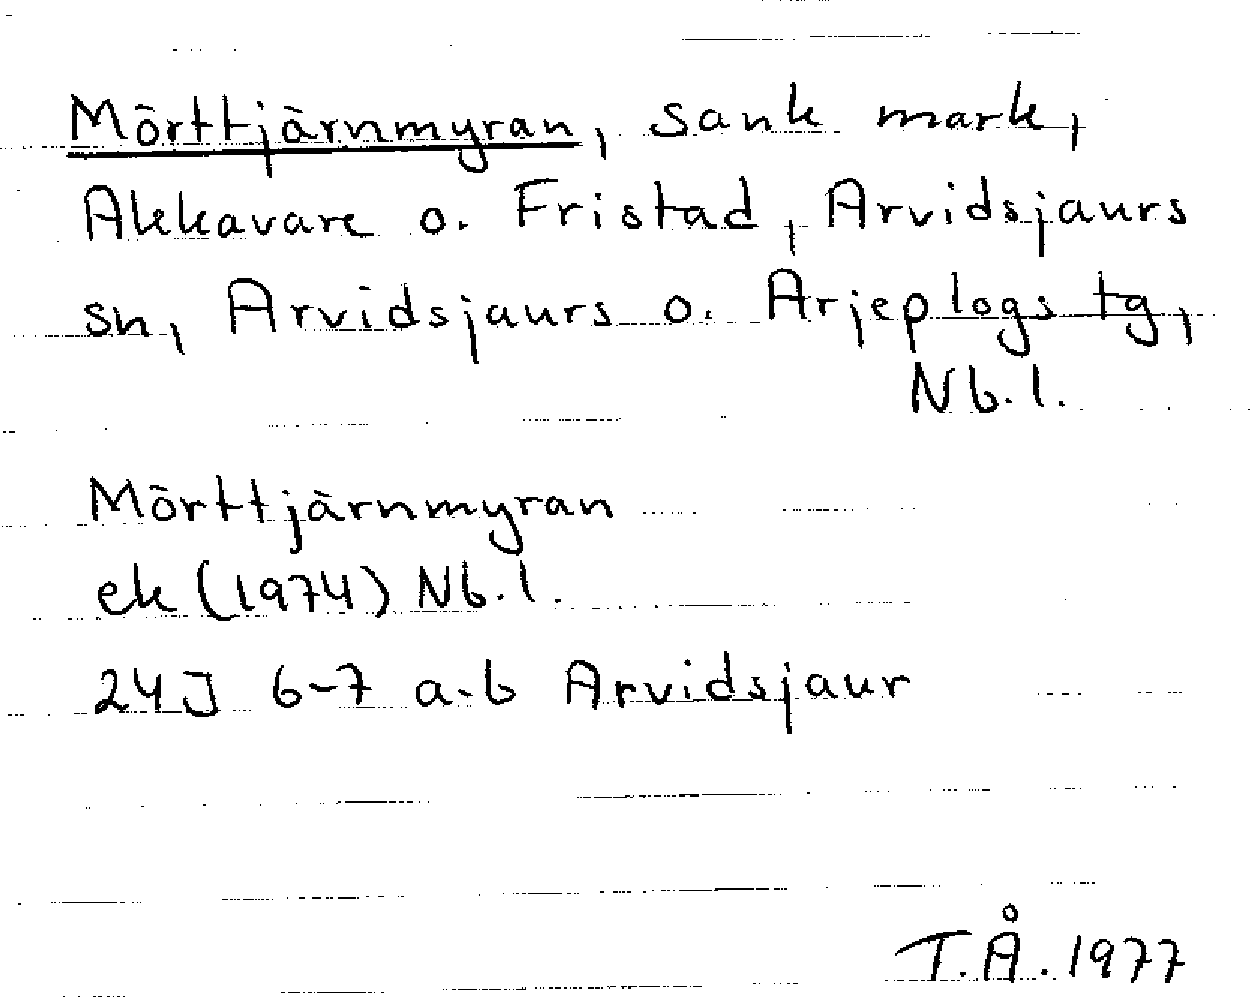 Mörttjärnmyran, sank mark,
Akkavare o. Fristad, Arvidsjaurs
sn, Arvidsjaurs o. Arjeplogs tg,
Nb.l.
Mörttjärnmyran
ek (1974) Nb.l.
24J 6-7 a-b Arvidsjaur
T.Å. 1977